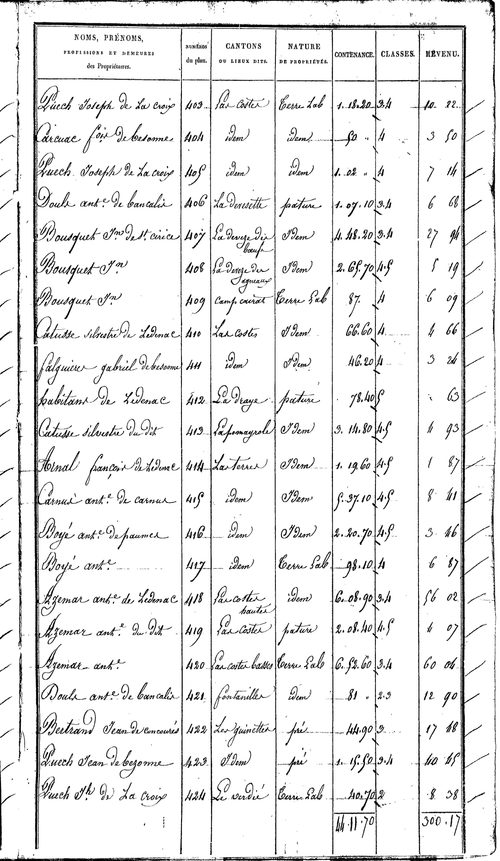 NOMS, PRÉNOMS, PROFESSIONS ET DEMEURES des Propriétaires. NUMÉROS du plan. CANTONS OU LIEUX DITS. NATURE DE PROPRIÉTÉS. CONTENANCE. CLASSES. REVENU.
Puech Joseph de La croix 403 Las Costes Terre Lab 1. 18.20 3.4 10 22
Carcuac fois de besonne 404 idem idem 50 " 4 3 50
Puech Joseph de La croix 405 idem idem 1. 02 " 4 7 14
Douls ant.e de cancalis 406 La Devesette pature 1. 07. 10 3.4 6 68
Bousquet Jn de St. cirice 407 La deveze des bœufs Idem 4. 48. 20 3.4 27 94
Bousquet Jn 408 La deveze des agneaux Idem 2. 65. 70 4.5 5 19
Bousquet Jn 409 camp cairat Terre Lab 87. 4 6 09
Catusse silvestre de Lédenac 410 Las costes Idem 66.60 4 4 66
falguiere gabriel de besonne 411 idem Idem 46.20 4 3 24
habitans de Lédenac 412 La Draye pature 78.40 5 63
Catusse silvestre du dit 413 Lapomayrole Idem 3. 14. 80 4.5 4 93
Arnal françois de Lédenac 414 Las terres Idem 1. 19 60 4.5 1 87
Carnus ant.e de carnus 415 idem Idem 5. 37. 10 4.5 8 41
Boyé ant.e de paumes 416 idem Idem 2. 20. 70 4.5 3 46
Boyé ant.e 417 idem Terre Lab 98.10 4 6 87
Azemar ant.e de Lédenac 418 Las costes hautes idem 6. 08. 90 3.4 56 02
Azemar ant.e du dit 419 Las Costes pature 2. 08. 40 4.5 4 07
Azemar ant.e 420 Las costes basses Terre Lab 6. 52. 60 3.4 60 04
Douls ant.e de Cancalis 421 fontanilles idem 81 " 2.3 12 90
Bertrand Jean de concourés 422 Les guinettes pré 44.90 3 17 48
Puech Jean de bezonne 423 Idem pré 1. 15. 50 3.4 40 45
Puech Jh de La croix 424 Le verdié Terre Lab 40.70 2 8 38
44. 11. 70 300. 17